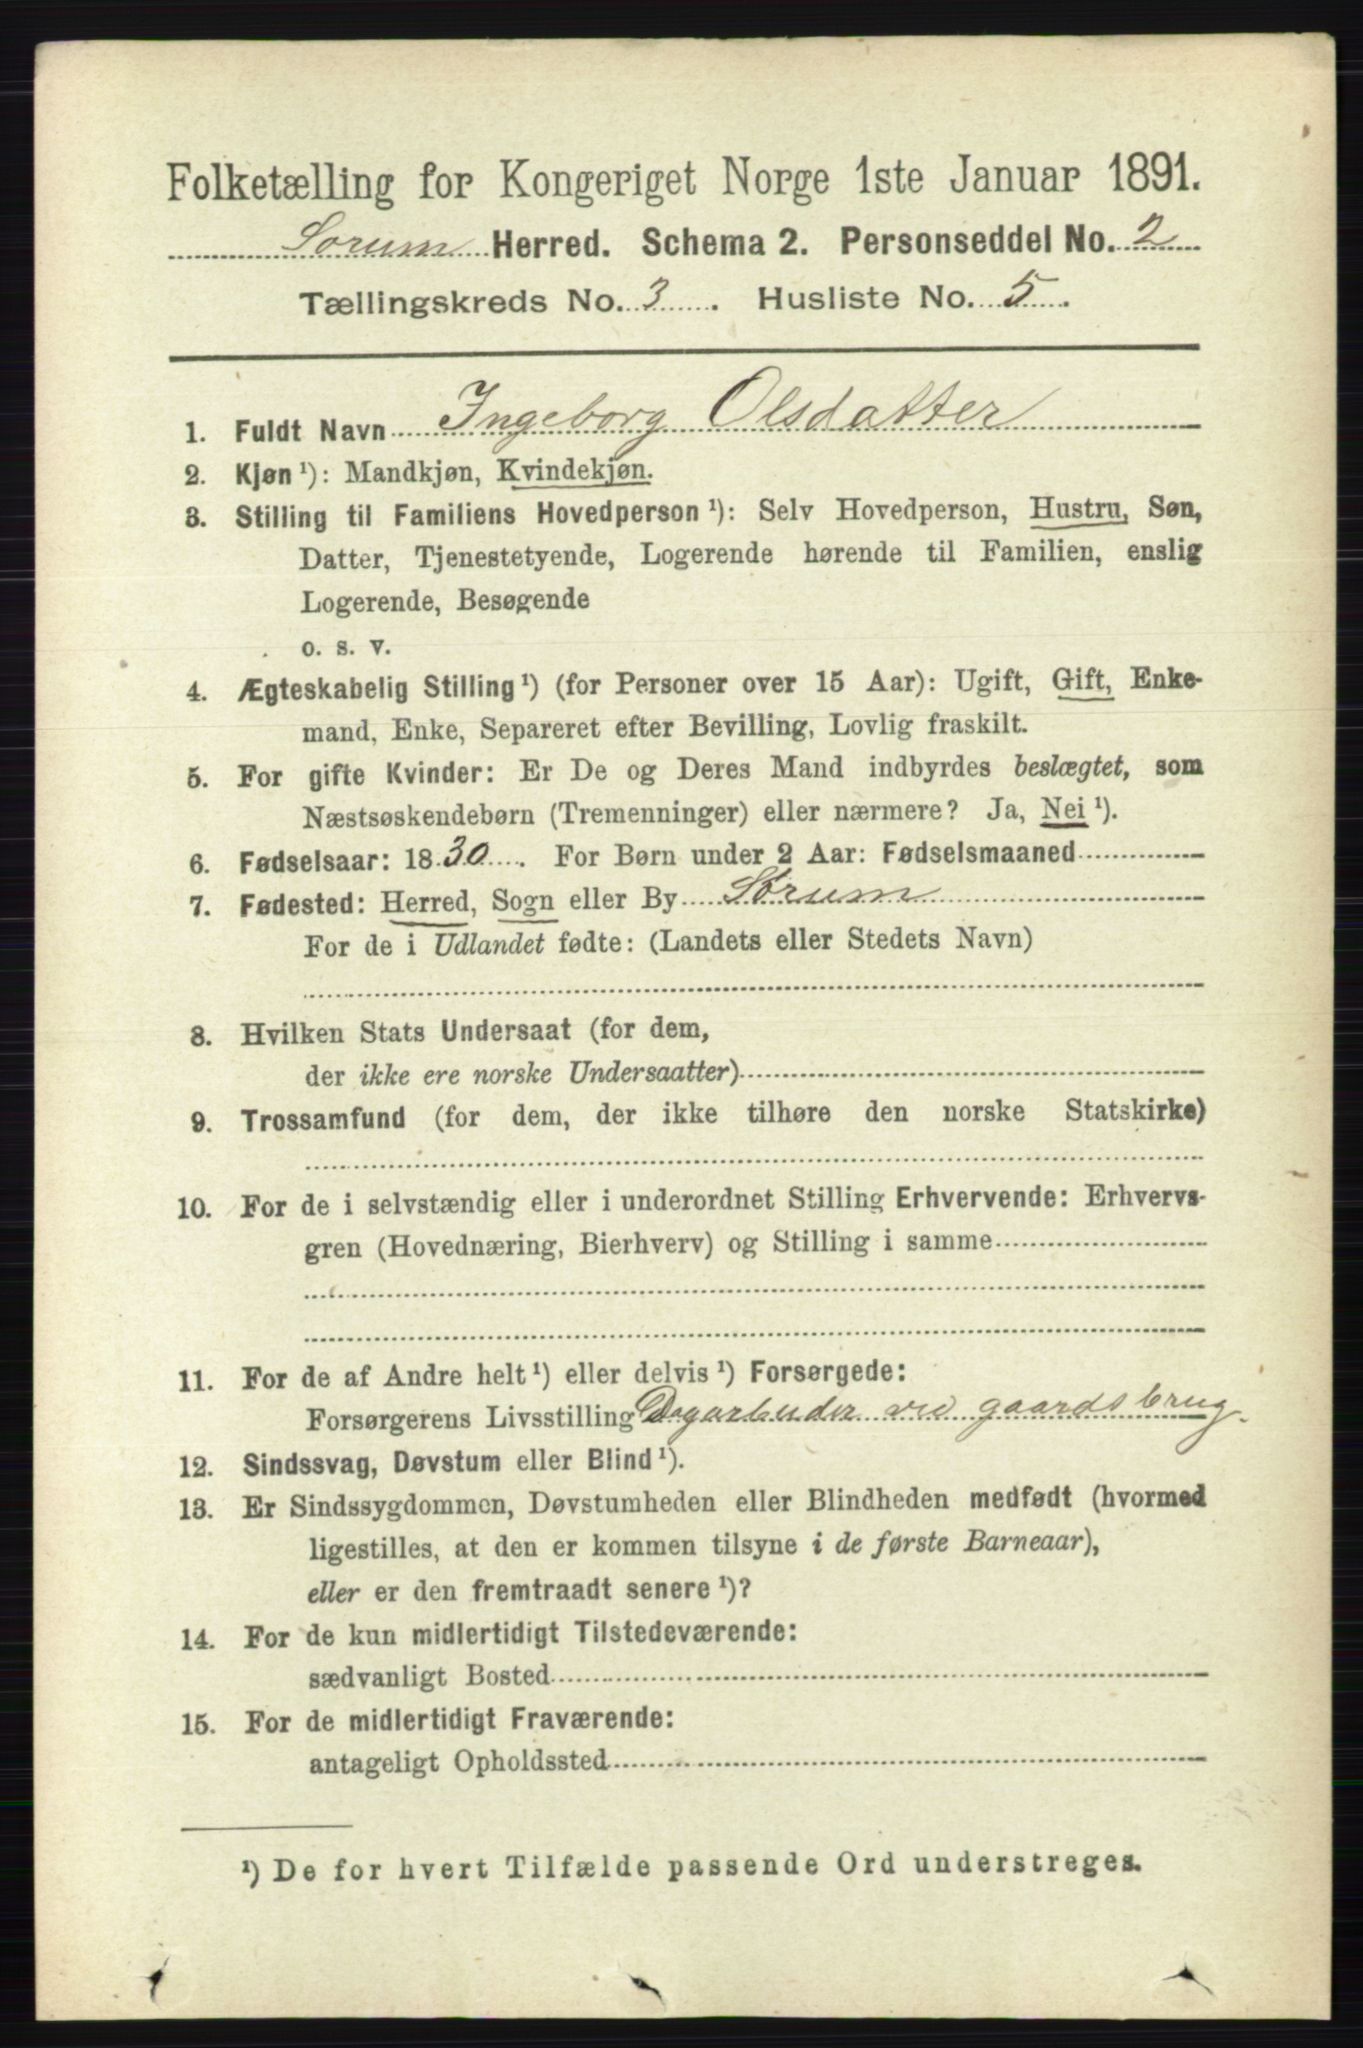 Folketælling for Kongeriget Norge 1ste Januar 1891.
Sorum Herred. Schema 2. Personseddel No. 2
Tællingskreds No. 3. Husliste No. 5.
1. Fuldt Navn Ingeborg Olsdatter
2. Kjøn¹): Mandkjøn, Kvindekjøn.
3. Stilling til Familiens Hovedperson¹): Selv Hovedperson, Hustru, Søn,
Datter, Tjenestetyende, Logerende hørende til Familien, enslig
Logerende, Besøgende
o. s. v.
4. Ægteskabelig Stilling¹) (for Personer over 15 Aar): Ugift, Gift, Enke-
mand, Enke, Separeret efter Bevilling, Lovlig fraskilt.
5. For gifte Kvinder: Er De og Deres Mand indbyrdes beslægtet, som
Næstsøskendebørn (Tremenninger) eller nærmere? Ja, Nei¹).
6. Fødselsaar: 1830. For Børn under 2 Aar: Fødselsmaaned
7. Fødested: Herred, Sogn eller By Sørum
For de i Udlandet fødte: (Landets eller Stedets Navn)
8. Hvilken Stats Undersaat (for dem,
der ikke ere norske Undersaatter)
9. Trossamfund (for dem, der ikke tilhøre den norske Statskirke)
10. For de i selvstændig eller i underordnet Stilling Erhvervende: Erhvervs-
gren (Hovednæring, Bierhverv) og Stilling i samme
11. For de af Andre helt¹) eller delvis¹) Forsørgede:
Forsørgerens Livsstilling Dagarbeider ved gaardsbrug.
12. Sindssvag, Døvstum eller Blind¹).
13. Er Sindssygdommen, Døvstumheden eller Blindheden medfødt (hvormed
ligestilles, at den er kommen tilsyne i de første Barneaar),
eller er den fremtraadt senere¹)?
14. For de kun midlertidigt Tilstedeværende:
sædvanligt Bosted
15. For de midlertidigt Fraværende:
antageligt Opholdssted
¹) De for hvert Tilfælde passende Ord understreges.